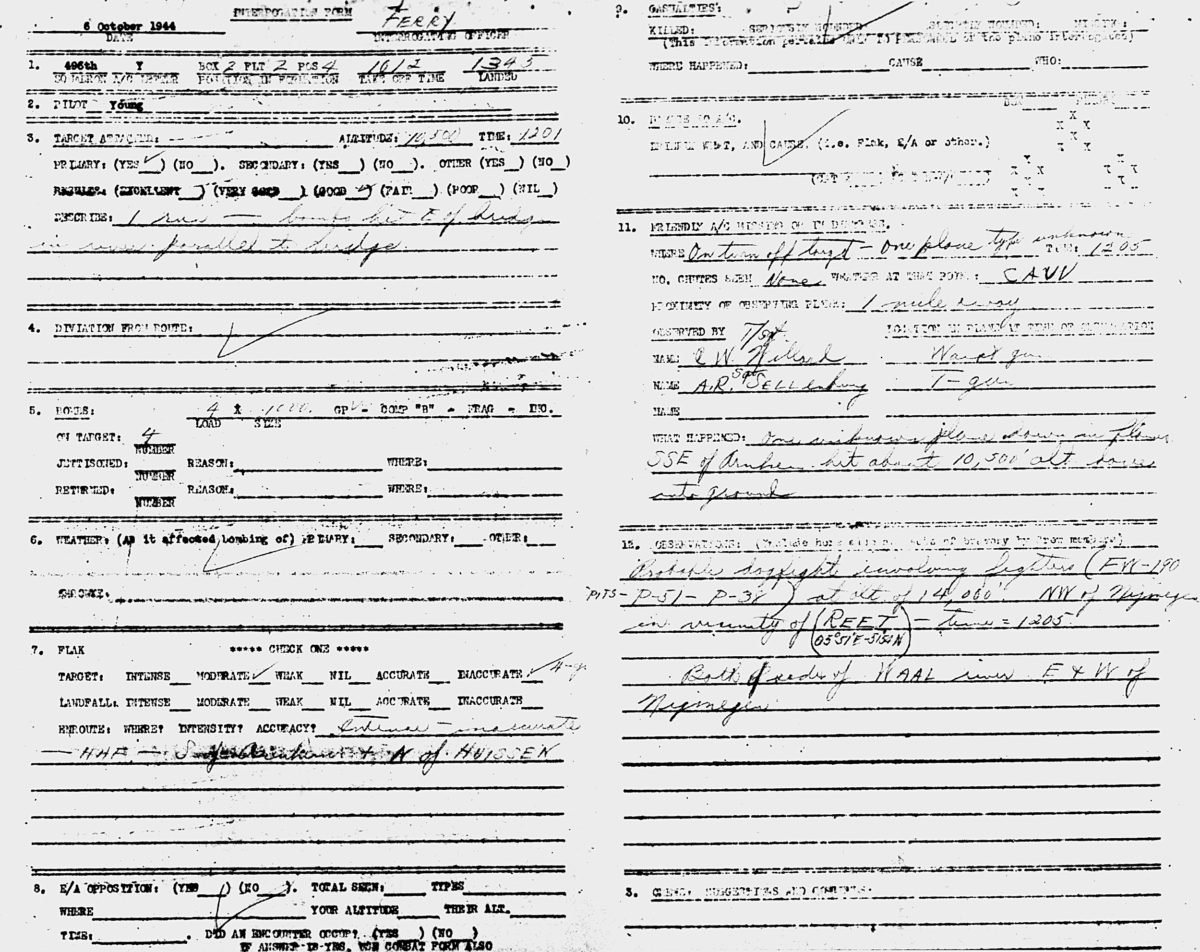 INTERROGATION FORM
6 October 1944 FERRY
DATE INTERROGATING OFFICER
1. 496th Y BOX 2 FLT 2 POS 4 1012 1345
POSITION IN FORMATION TAKE OFF TIME LANDED
2. PILOT Young
3. TARGET ATTACKED: ALTITUDE: 10,500 TIME: 1201
PRIMARY: (YES ✓) (NO__). SECONDARY: (YES__) (NO__). OTHER (YES__) (NO__)
RESULTS: (EXCELLENT__) (VERY GOOD__) (GOOD ✓) (FAIR__) (POOR__) (NIL__)
DESCRIBE: 1 run — bombs hit E of bridge
in river parallel to bridge
4. DIVIATION FROM ROUTE:
5. BOMBS: 4 X 1000 GP ✓ - COMP "B" - FRAG - INC.
LOAD SIZE
ON TARGET: 4
NUMBER
JETTISONED: REASON: WHERE:
NUMBER
RETURNED: REASON: WHERE:
NUMBER
6. WEATHER: (As it affected bombing of) PRIMARY: SECONDARY: OTHER:
ENROUTE:
7. FLAK ***** CHECK ONE *****
TARGET: INTENSE MODERATE ✓ WEAK NIL ACCURATE INACCURATE ✓
LANDFALL: INTENSE MODERATE WEAK NIL ACCURATE INACCURATE
ENROUTE: WHERE? INTENSITY? ACCURACY? Intense — inaccurate
— HHF — S of Arnhem + N of HUISSEN
8. E/A OPPOSITION: (YES ) (NO ). TOTAL SEEN: TYPES
WHERE YOUR ALTITUDE THEIR ALT.
TIME: . DID AN ENCOUNTER OCCUR? (YES ) (NO )
IF ANSWER IS YES, COMBAT FORM ALSO
9. CASUALTIES:
KILLED: SERIOUSLY WOUNDED: SLIGHTLY WOUNDED: MISSING:
(This information pertains ONLY TO PERSONNEL of the plane interrogated)
WHERE HAPPENED: CAUSE WHO:
10. DAMAGE TO A/C.
EXPLAIN WHAT, AND CAUSE, (i.e. Flak, E/A or other.)
11. FRIENDLY A/C MISSING OR IN DISTRESS.
WHERE On turn off target — one plane type unknown TIME: 1205
NO. CHUTES SEEN None WEATHER AT THAT POINT: CAVU
PROXIMITY OF OBSERVING PLANE: 1 mile away
OBSERVED BY LOCATION IN PLANE AT TIME OF OBSERVATION
T/Sgt
NAME C W Waist gun
Sgt
NAME A.R. T-gun
NAME
WHAT HAPPENED: One unknown plane down in flames
SSE of Arnhem hit about 10,500' alt
into ground
12. OBSERVATIONS:
Probable dogfight involving fighters (FW-190
P47S - P-51 - P-38) at alt of 14,000'. NW of Nijmegen
in vicinity of (REET 05°51'E-51°54'N) — time = 1205
Both sides of WAAL river E + W of
Nijmegen
3. CREWS: SUGGESTIONS AND COMMENTS: